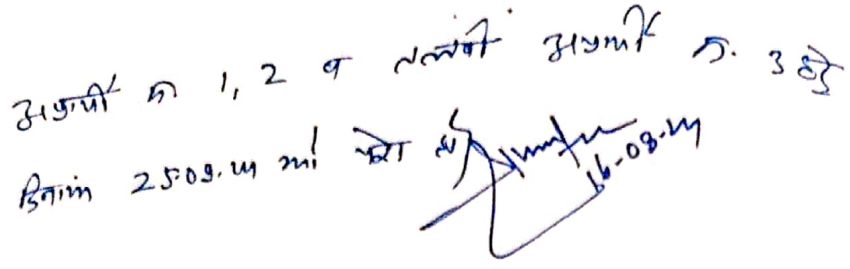 अप्रार्थी क्र 1, 2 व तलबी अप्रार्थी क्र. 3 हेतु
दिनांक 25.09. को पेश हो
16-08-